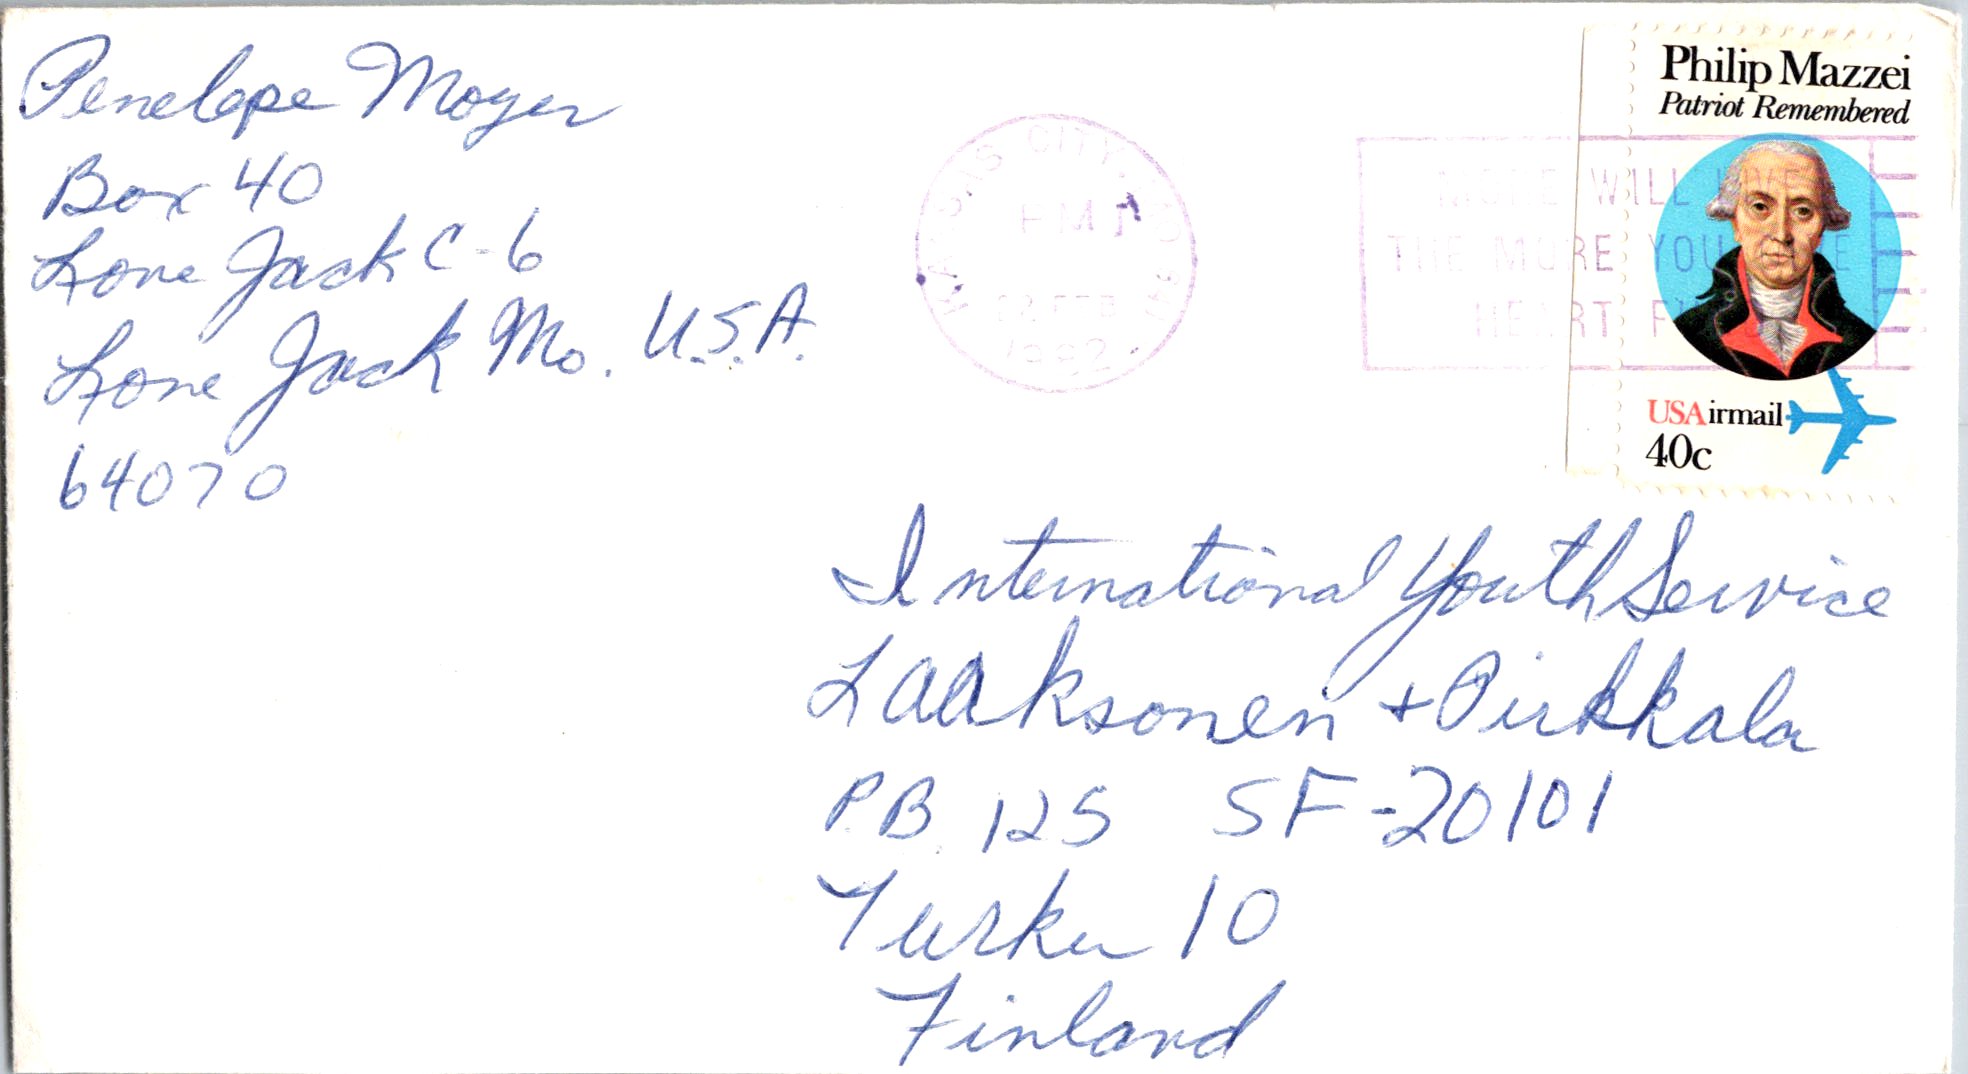 Penelope Moyer
Box 40
Lone Jack C-6
Lone Jack Mo. U.S.A.
64070
KANSAS CITY, MO
PM
FEB
1982
MORE WILL LIVE
THE MORE YOU GIVE
HEART F
Philip Mazzei
Patriot Remembered
USAirmail
40c
International Youth Service
Laaksonen + Pirkkala
P.B. 125 SF-20101
Turku 10
Finland